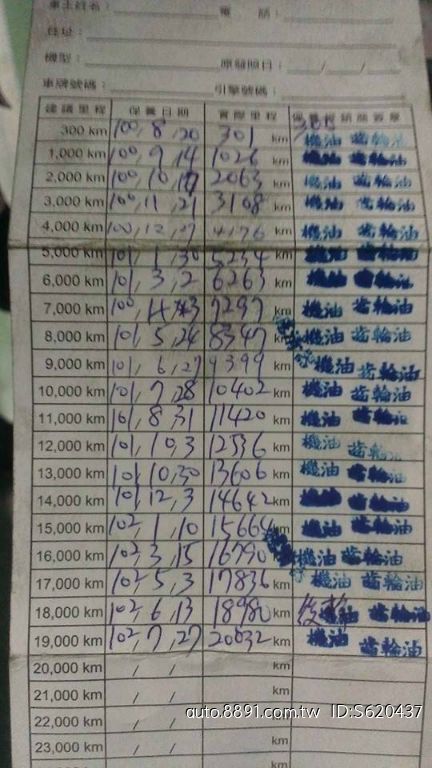 車主姓名： 電話：
住址：
機型： 原發照日： / /
車牌號碼： 引擎號碼：
建議里程 保養日期 實際里程
300 km 100, 8, 20 301 km 機油 齒輪油
1,000 km 100, 9, 14 1026 km 機油 齒輪油
2,000 km 100, 10, 17 2063 km 機油 齒輪油
3,000 km 100, 11, 21 3108 km 機油 齒輪油
4,000 km 100, 12, 27 4176 km 機油 齒輪油
5,000 km 101, 1, 30 5234 km 機油 齒輪油
6,000 km 101, 3, 2 6263 km 機油 齒輪油
7,000 km 7297 km 機油 齒輪油
8,000 km 101, 5, 24 8347 km 機油 齒輪油
9,000 km 101, 6, 27 9399 km 機油 齒輪油
10,000 km 101, 7, 28 10402 km 機油 齒輪油
11,000 km 101, 8, 31 11420 km 機油 齒輪油
12,000 km 101, 10, 3 12536 km 機油 齒輪油
13,000 km 101, 10, 30 13606 km 機油 齒輪油
14,000 km 101, 12, 3 14642 km 機油 齒輪油
15,000 km 102, 1, 10 15664 km 機油 齒輪油
16,000 km 102, 3, 15 16790 km 機油 齒輪油
17,000 km 102, 5, 3 17836 km 機油 齒輪油
18,000 km 102, 6, 13 18980 km 機油 齒輪油
19,000 km 102, 7, 27 20032 km 機油 齒輪油
20,000 km / / km
21,000 km / / km
22,000 km / / km
23,000 km / / km
auto.8891.com.tw ID:S620437